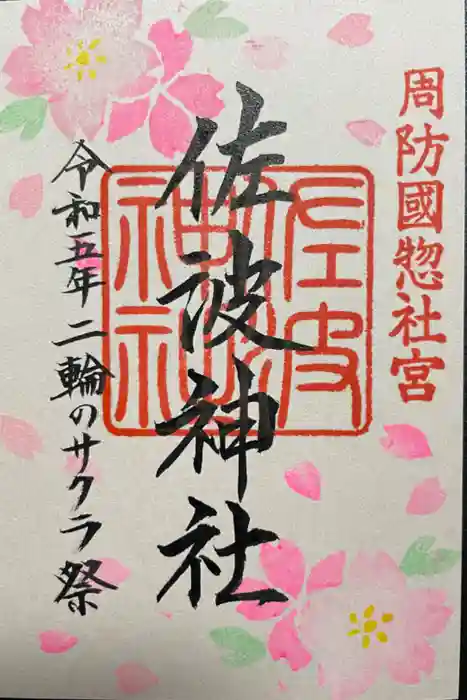 周防國惣社宮
佐波神社
佐波神社
令和五年二輪のサクラ祭